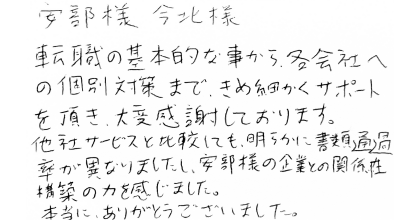 安部様 今北様
転職の基本的な事から、各会社へ
の個別対策まで、きめ細かくサポート
を頂き、大変感謝しております。
他社サービスと比較しても、明らかに書類通過
率が異なりましたし、安部様の企業との関係性
構築の力を感じました。
本当に、ありがとうございました。